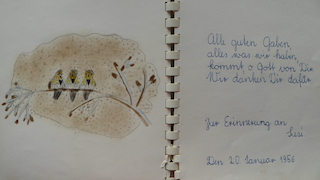 Alle guten Gaben
alles was wir haben
kommt o Gott von Dir
Wir danken Dir dafür
Zur Erinnerung an
Susi
Den 20 Januar 1956